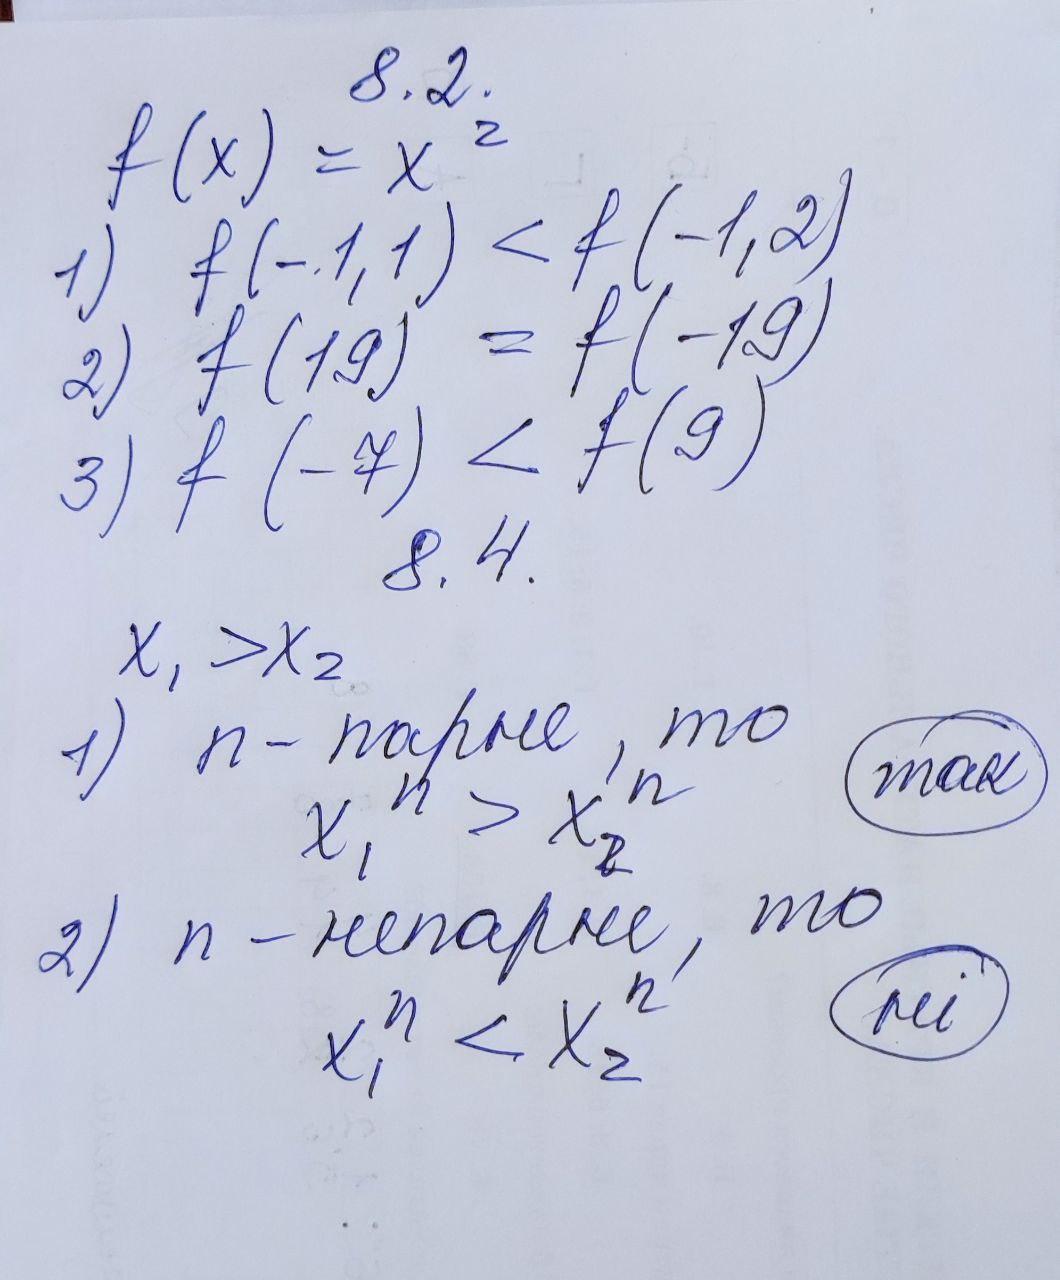 8.2.
f(x) = x²
1) f(-1,1) < f(-1,2)
2) f(19) = f(-19)
3) f(-7) < f(9)
8.4.
x₁ > x₂
1) n - парне, то
x₁ⁿ > x₂ⁿ
так
2) n - непарне, то
x₁ⁿ < x₂ⁿ
ні